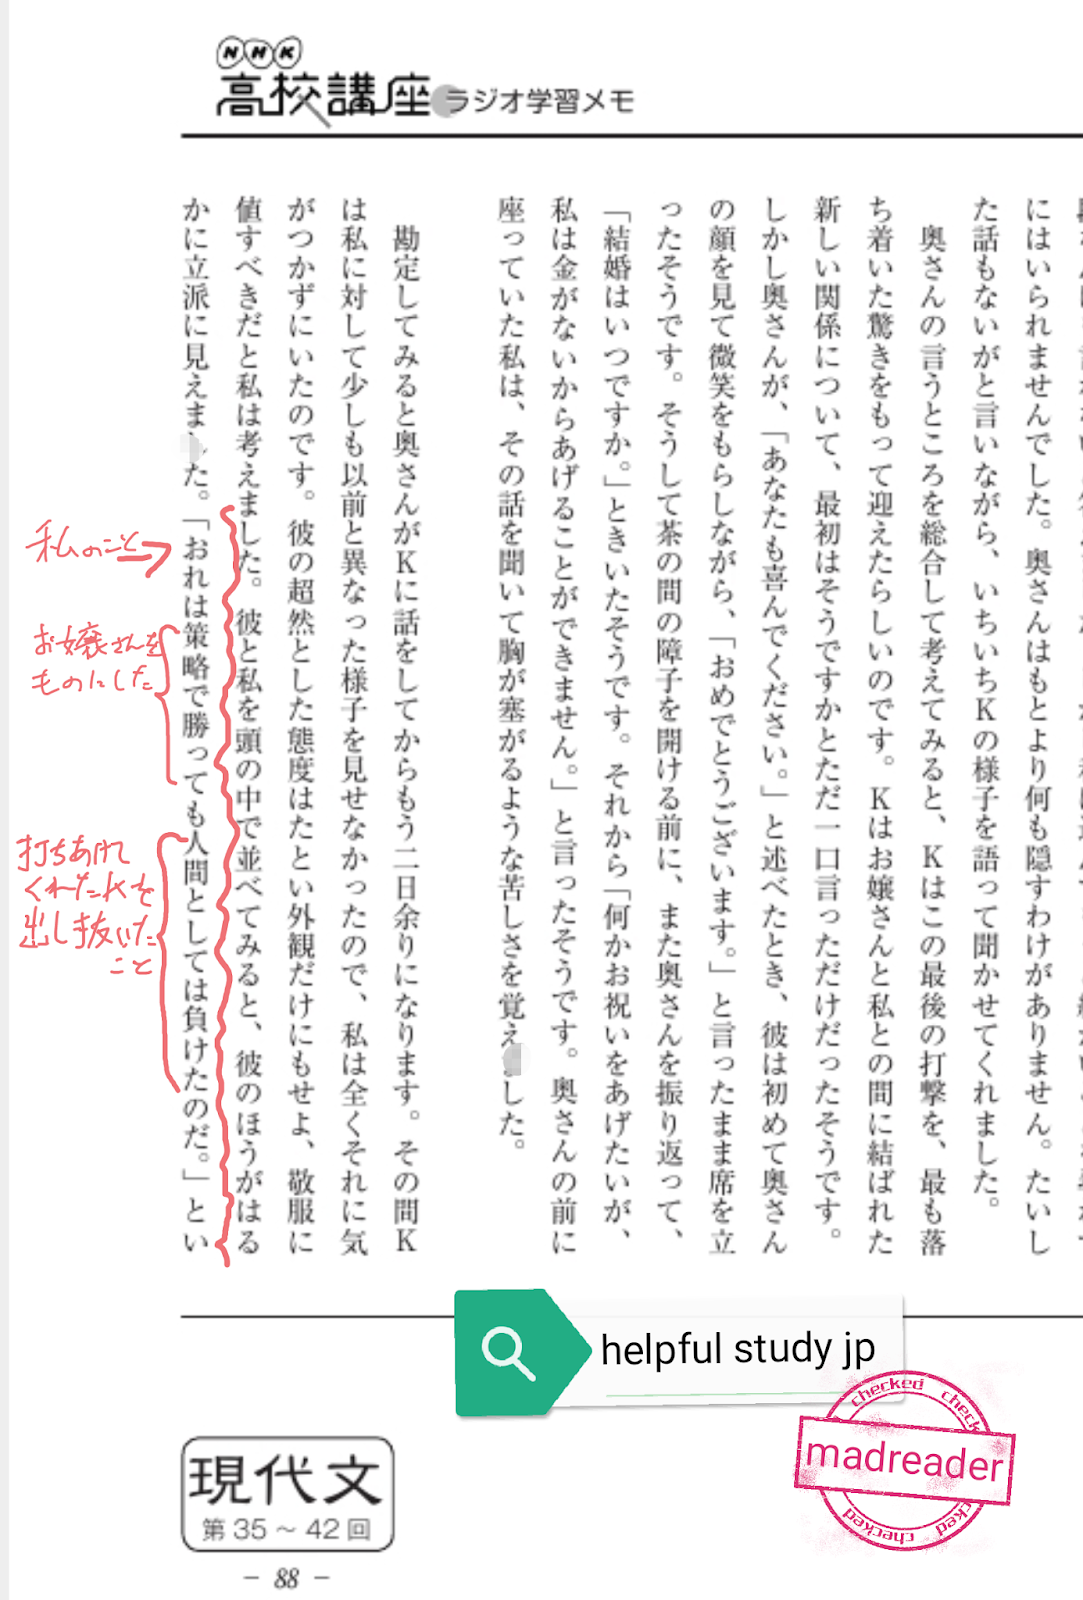 NHK
高校講座
ラジオ学習メモ
にはいられませんでした。奥さんはもとより何も隠すわけがありません。たいし
た話もないがと言いながら、いちいちKの様子を語って聞かせてくれました。
奥さんの言うところを総合して考えてみると、Kはこの最後の打撃を、最も落
ち着いた驚きをもって迎えたらしいのです。Kはお嬢さんと私との間に結ばれた
新しい関係について、最初はそうですかとただ一口言っただけだったそうです。
しかし奥さんが、「あなたも喜んでください。」と述べたとき、彼は初めて奥さん
の顔を見て微笑をもらしながら、「おめでとうございます。」と言ったまま席を立
ったそうです。そうして茶の間の障子を開ける前に、また奥さんを振り返って、
「結婚はいつですか。」ときいたそうです。それから「何かお祝いをあげたいが、
私は金がないからあげることができません。」と言ったそうです。奥さんの前に
座っていた私は、その話を聞いて胸が塞がるような苦しさを覚えました。
勘定してみると奥さんがKに話をしてからもう二日余りになります。その間K
は私に対して少しも以前と異なった様子を見せなかったので、私は全くそれに気
がつかずにいたのです。彼の超然とした態度はたとい外観だけにもせよ、敬服に
値すべきだと私は考えました。彼と私を頭の中で並べてみると、彼のほうがはる
かに立派に見えました。「おれは策略で勝っても人間としては負けたのだ。」とい
私のこと
お嬢さんを
ものにした
打ちあけて
くれたKを
出し抜いた
こと
helpful study jp
checked check
madreader
checked checked
現代文
第35～42回
－ 88 －